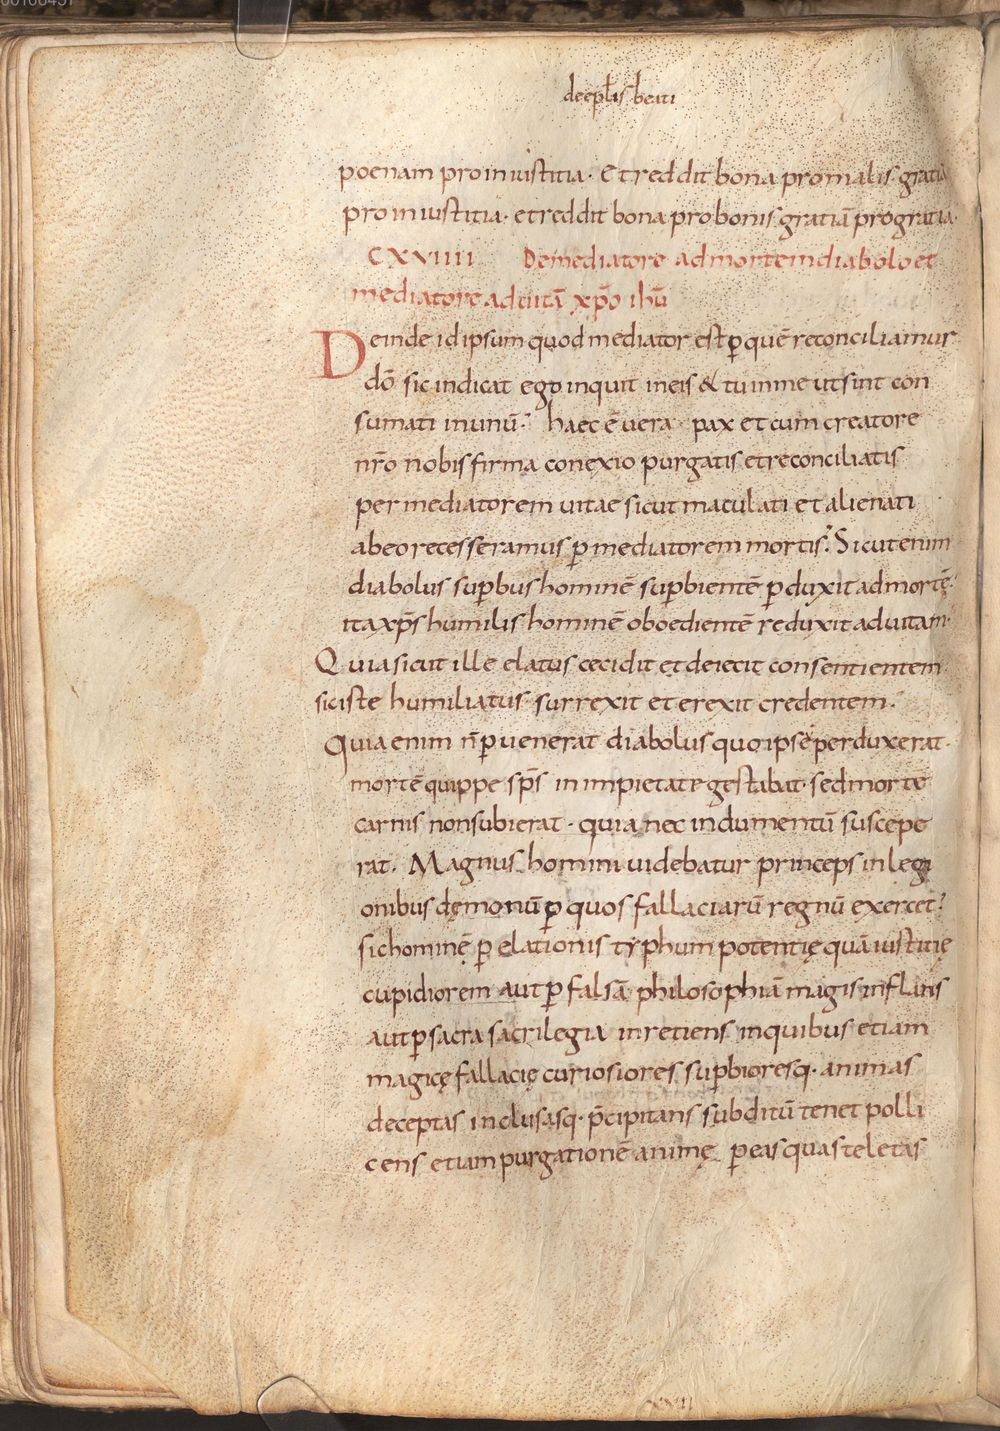 deeplis beati
poenam pro iniustitia · Et reddit bona pro malis gratiā
pro iniustitia · et reddit bona pro bonis gratiā pro gratia ·
CXVIIII De mediatore ad mortem diabolo et
mediatore ad uitā xp̄o ihū
Deinde id ipsum quod mediator est ꝑ quē reconciliamur
dō sic indicat ego inquit in eis & tu in me ut sint con
sumati in unū · haec ē uera pax et cum creatore
nr̄o nobis firma conexio purgatis et reconciliatis
per mediatorem uitae sicut maculati et alienati
ab eo recesseramus ꝑ mediatorem mortis · Sicut enim
diabolus suꝑbus hominē suꝑbientē ꝑduxit ad mortē ·
ita xp̄s humilis hominē oboedientē reduxit ad uitam ·
Quia sicut ille elatus cecidit et deiecit consentientem
sic iste humiliatus surrexit et erexit credentem ·
Quia enim n̄ ꝑuenerat diabolus quo ipse perduxerat ·
mortē quippe sp̄s in impietate gestabat · sed morte
carnis non subierat · quia nec indumentū suscepe
rat · Magnus homini uidebatur princeps in legi
onibus dęmonū ꝑ quos fallaciarū regnū exercet ·
sic hominē ꝑ elationis typhum potentię quā iustitię
cupidiorem aut ꝑ falsā philosophiā magis inflans
aut ꝑ sacra sacrilegia inretiens in quibus etiam
magicę fallacię curiosiores suꝑbioresq· animas
deceptas inclusasq· p̄cipitans subditū tenet polli
cens etiam purgationē animę ꝑ eas quas teletas